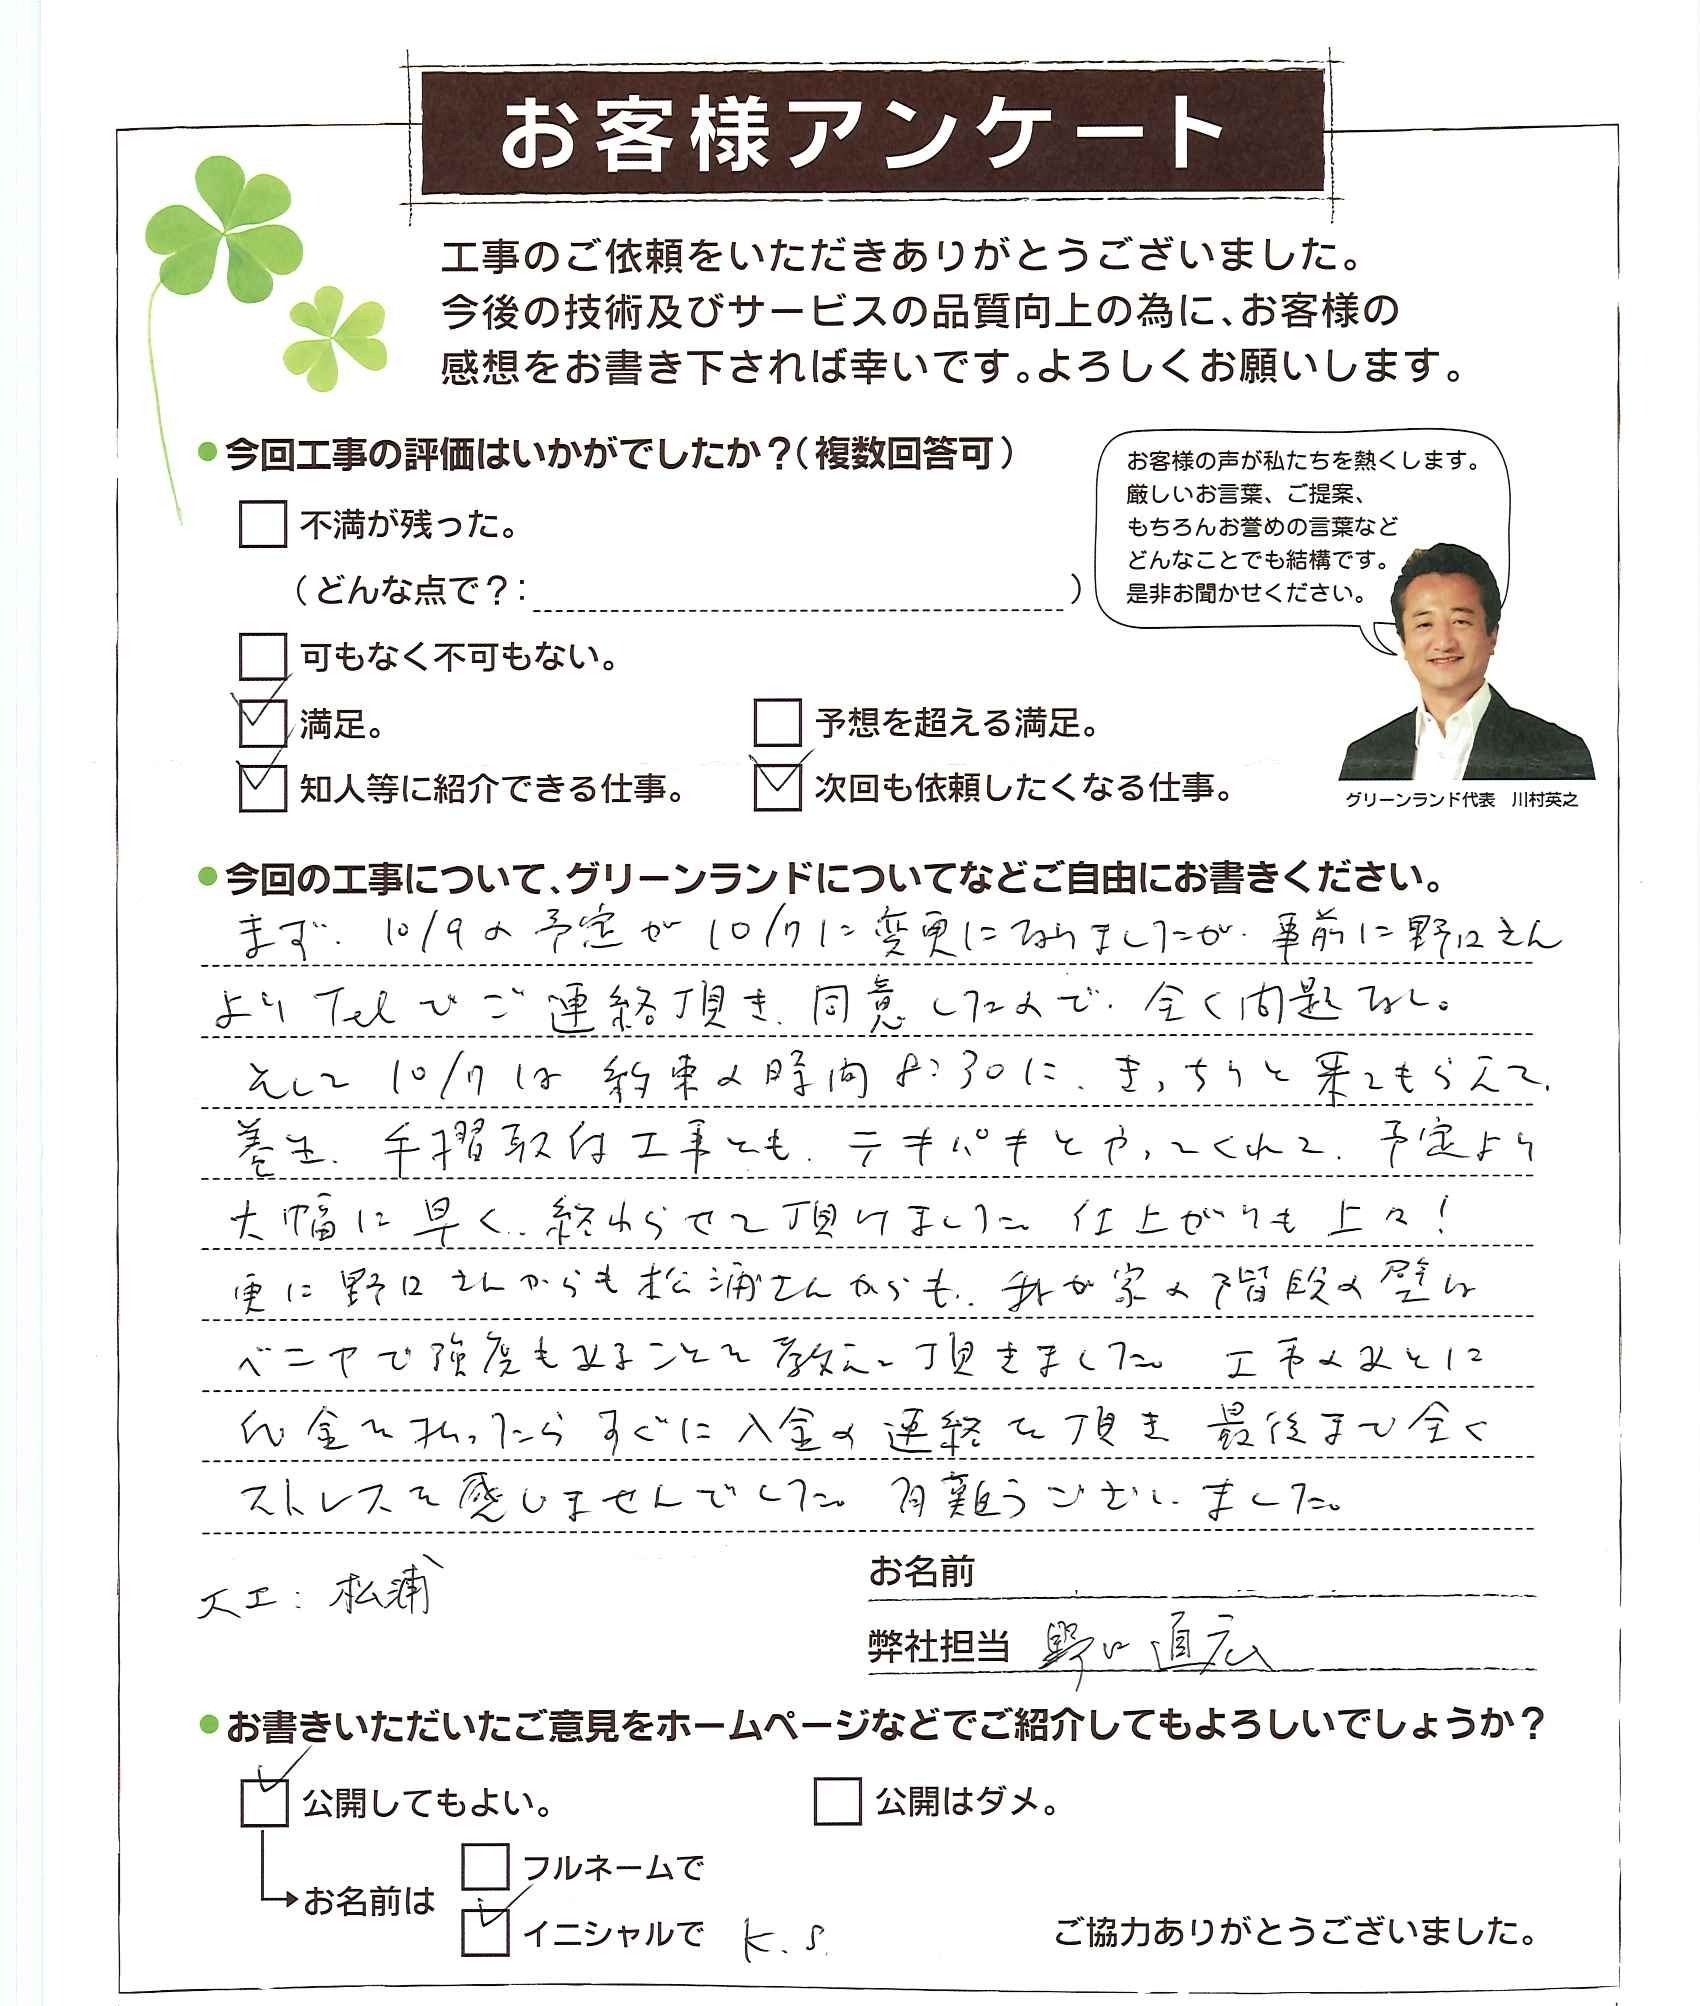 お客様アンケート
工事のご依頼をいただきありがとうございました。
今後の技術及びサービスの品質向上の為に、お客様の
感想をお書き下されば幸いです。よろしくお願いします。
●今回工事の評価はいかがでしたか？（複数回答可）
不満が残った。
（どんな点で？：　　　　）
可もなく不可もない。
満足。
予想を超える満足。
知人等に紹介できる仕事。
次回も依頼したくなる仕事。
お客様の声が私たちを熱くします。
厳しいお言葉、ご提案、
もちろんお誉めの言葉など
どんなことでも結構です。
是非お聞かせください。
グリーンランド代表　川村英之
●今回の工事について、グリーンランドについてなどご自由にお書きください。
まず、10/9の予定が10/7に変更になりましたが、事前に野口さん
よりTelでご連絡頂き、同意したので、全く問題なし。
そして10/7は約束の時間8:30に、きっちりと来てもらえて、
養生、手摺取付工事とも、テキパキとやってくれて、予定より
大幅に早く、終わらせて頂けました。仕上がりも上々！
更に野口さんからも松浦さんからも、我が家の階段の壁は
ベニヤで強度もあることを教えて頂きました。工事のあとに
代金を払ったらすぐに入金の連絡を頂き最後まで全く
ストレスを感じませんでした。有難うございました。
大工：松浦
お名前
弊社担当　野口 直広
●お書きいただいたご意見をホームページなどでご紹介してもよろしいでしょうか？
公開してもよい。
公開はダメ。
お名前は
フルネームで
イニシャルで　K.S.
ご協力ありがとうございました。